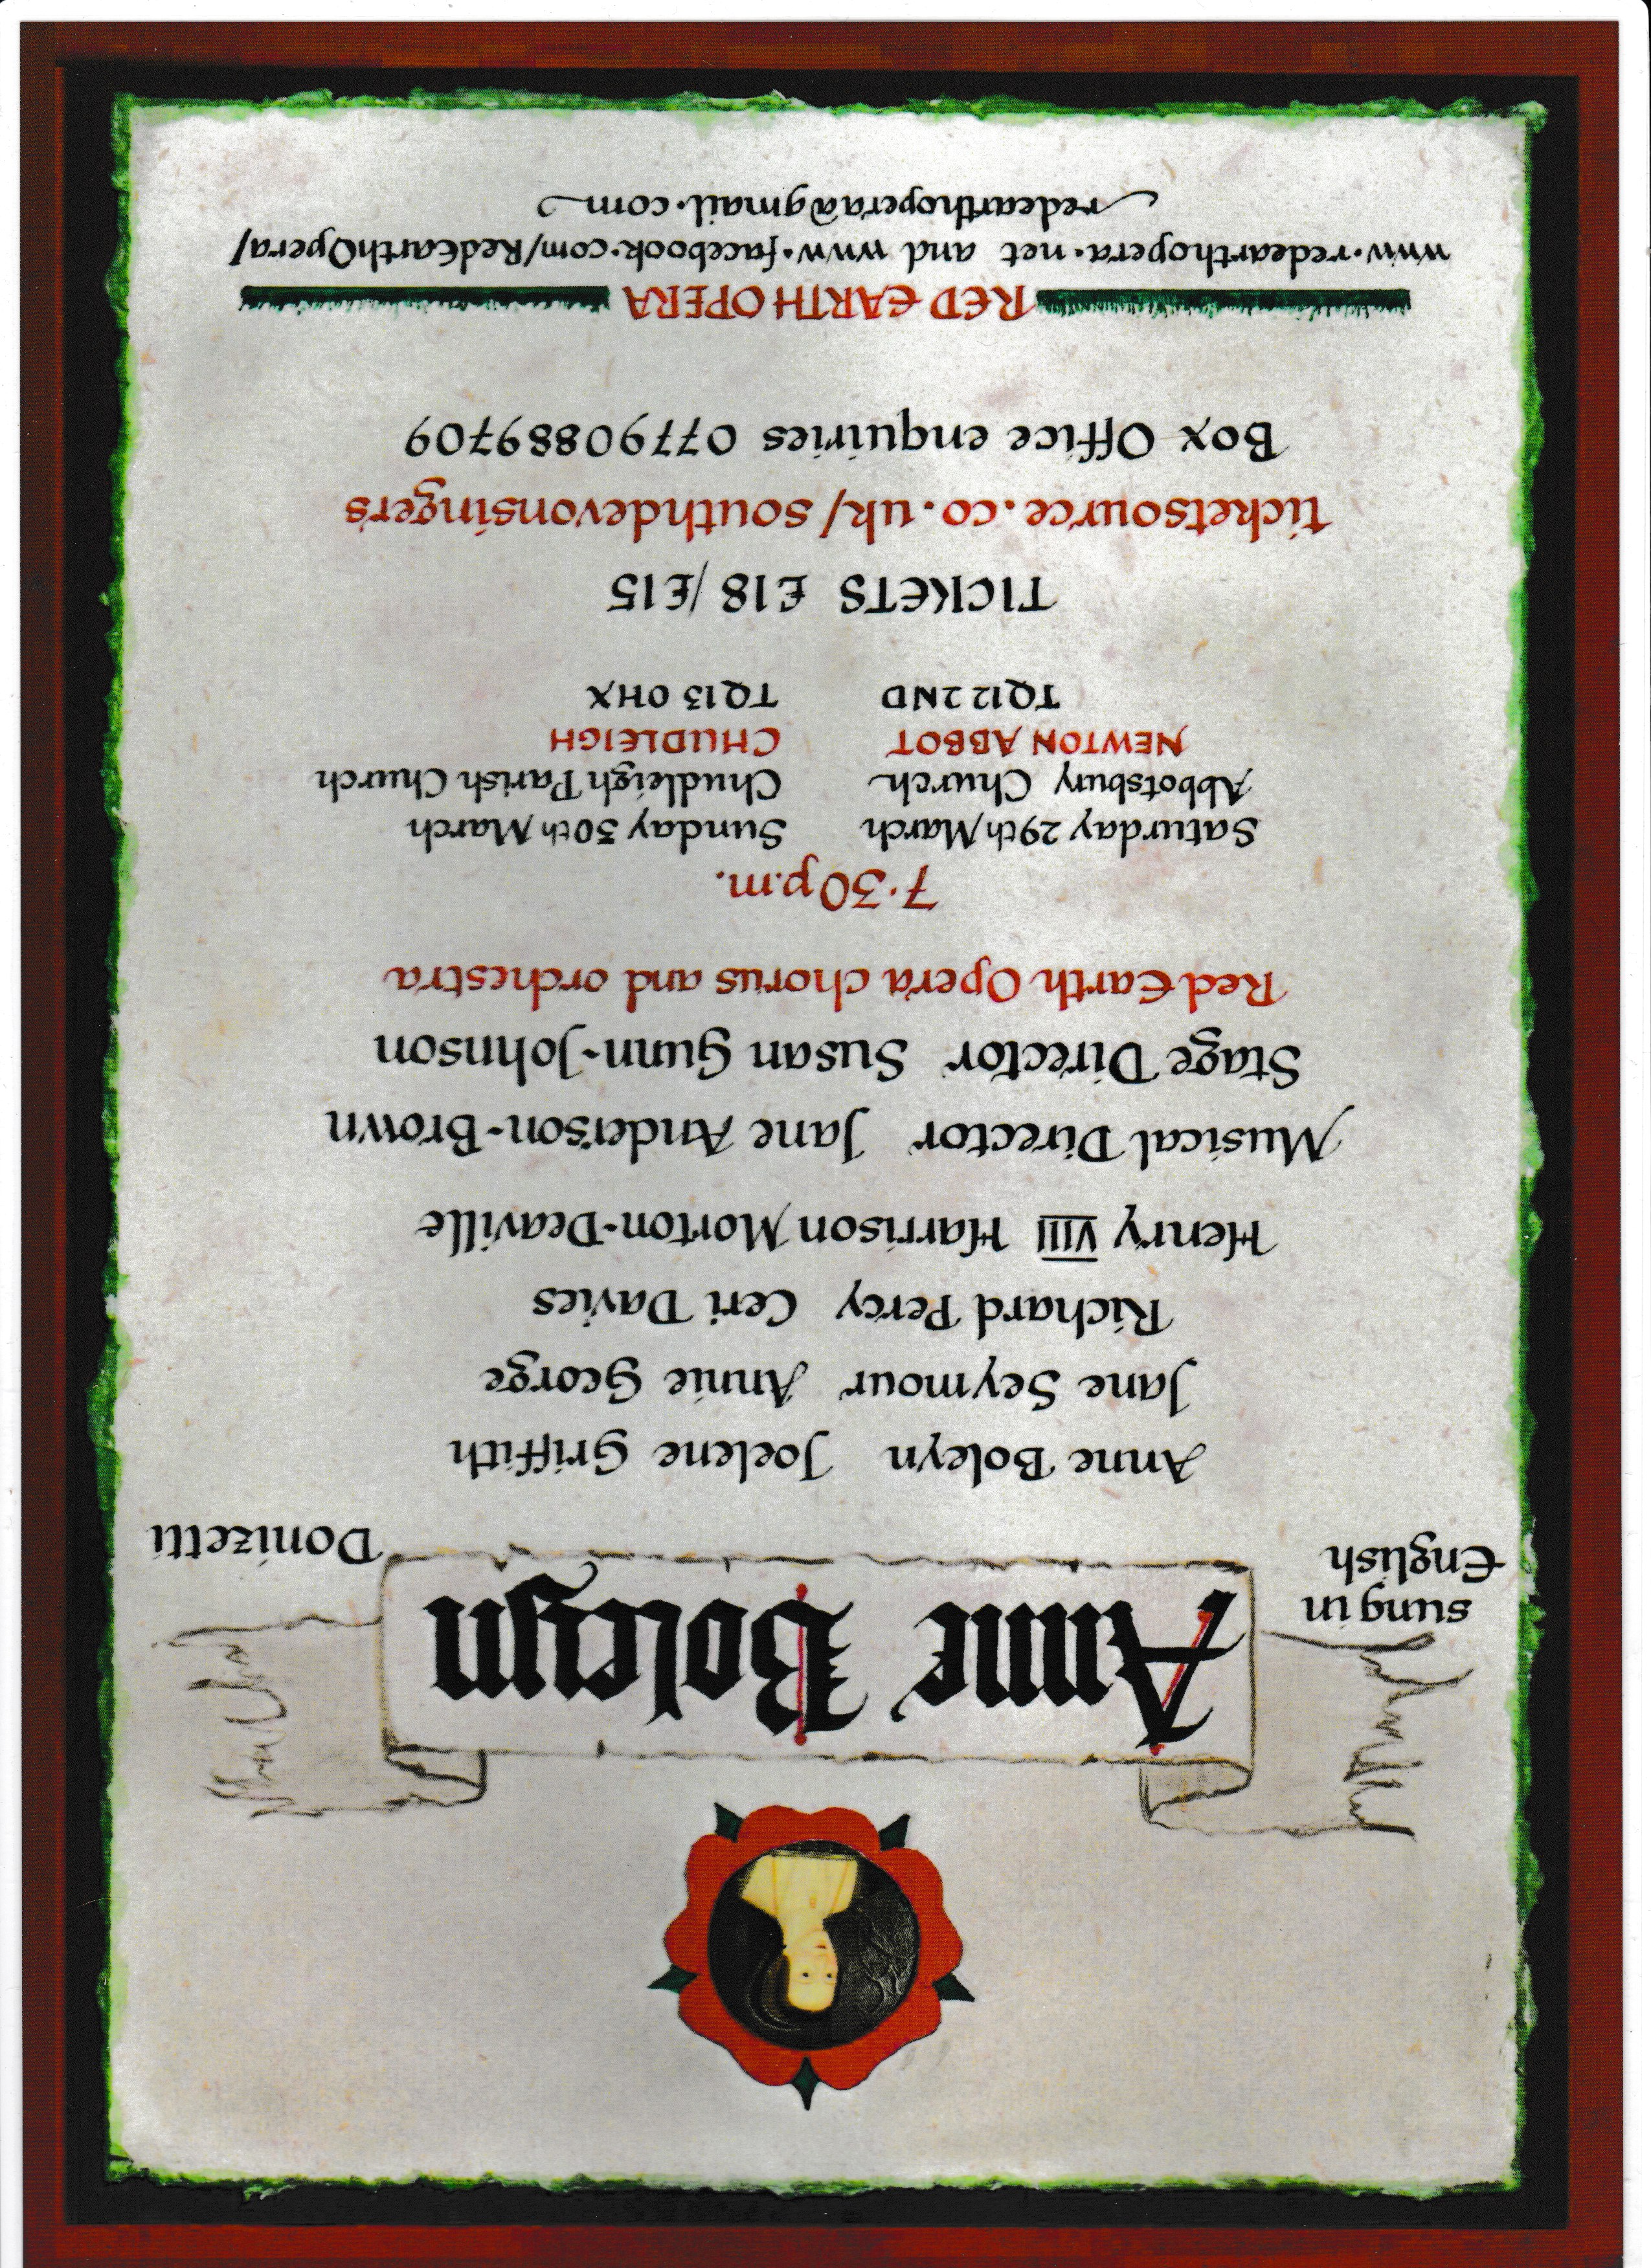 Anne Boleyn
sung in
English
Donizetti
Anne Boleyn Joelene Griffith
Jane Seymour Annie George
Richard Percy Ceri Davies
Henry VIII Harrison Morton-Deaville
Musical Director Jane Anderson-Brown
Stage Director Susan Gunn-Johnson
Red Earth Opera chorus and orchestra
7·30p.m.
Saturday 29th March
Abbotsbury Church
NEWTON ABBOT
TQ12 2ND
Sunday 30th March
Chudleigh Parish Church
CHUDLEIGH
TQ13 0HX
TICKETS £18/£15
ticketsource.co.uk/southdevonsingers
Box Office enquiries 07790889709
RED EARTH OPERA
www.redearthopera.net and www.facebook.com/RedEarthOpera/
redearthopera@gmail.com